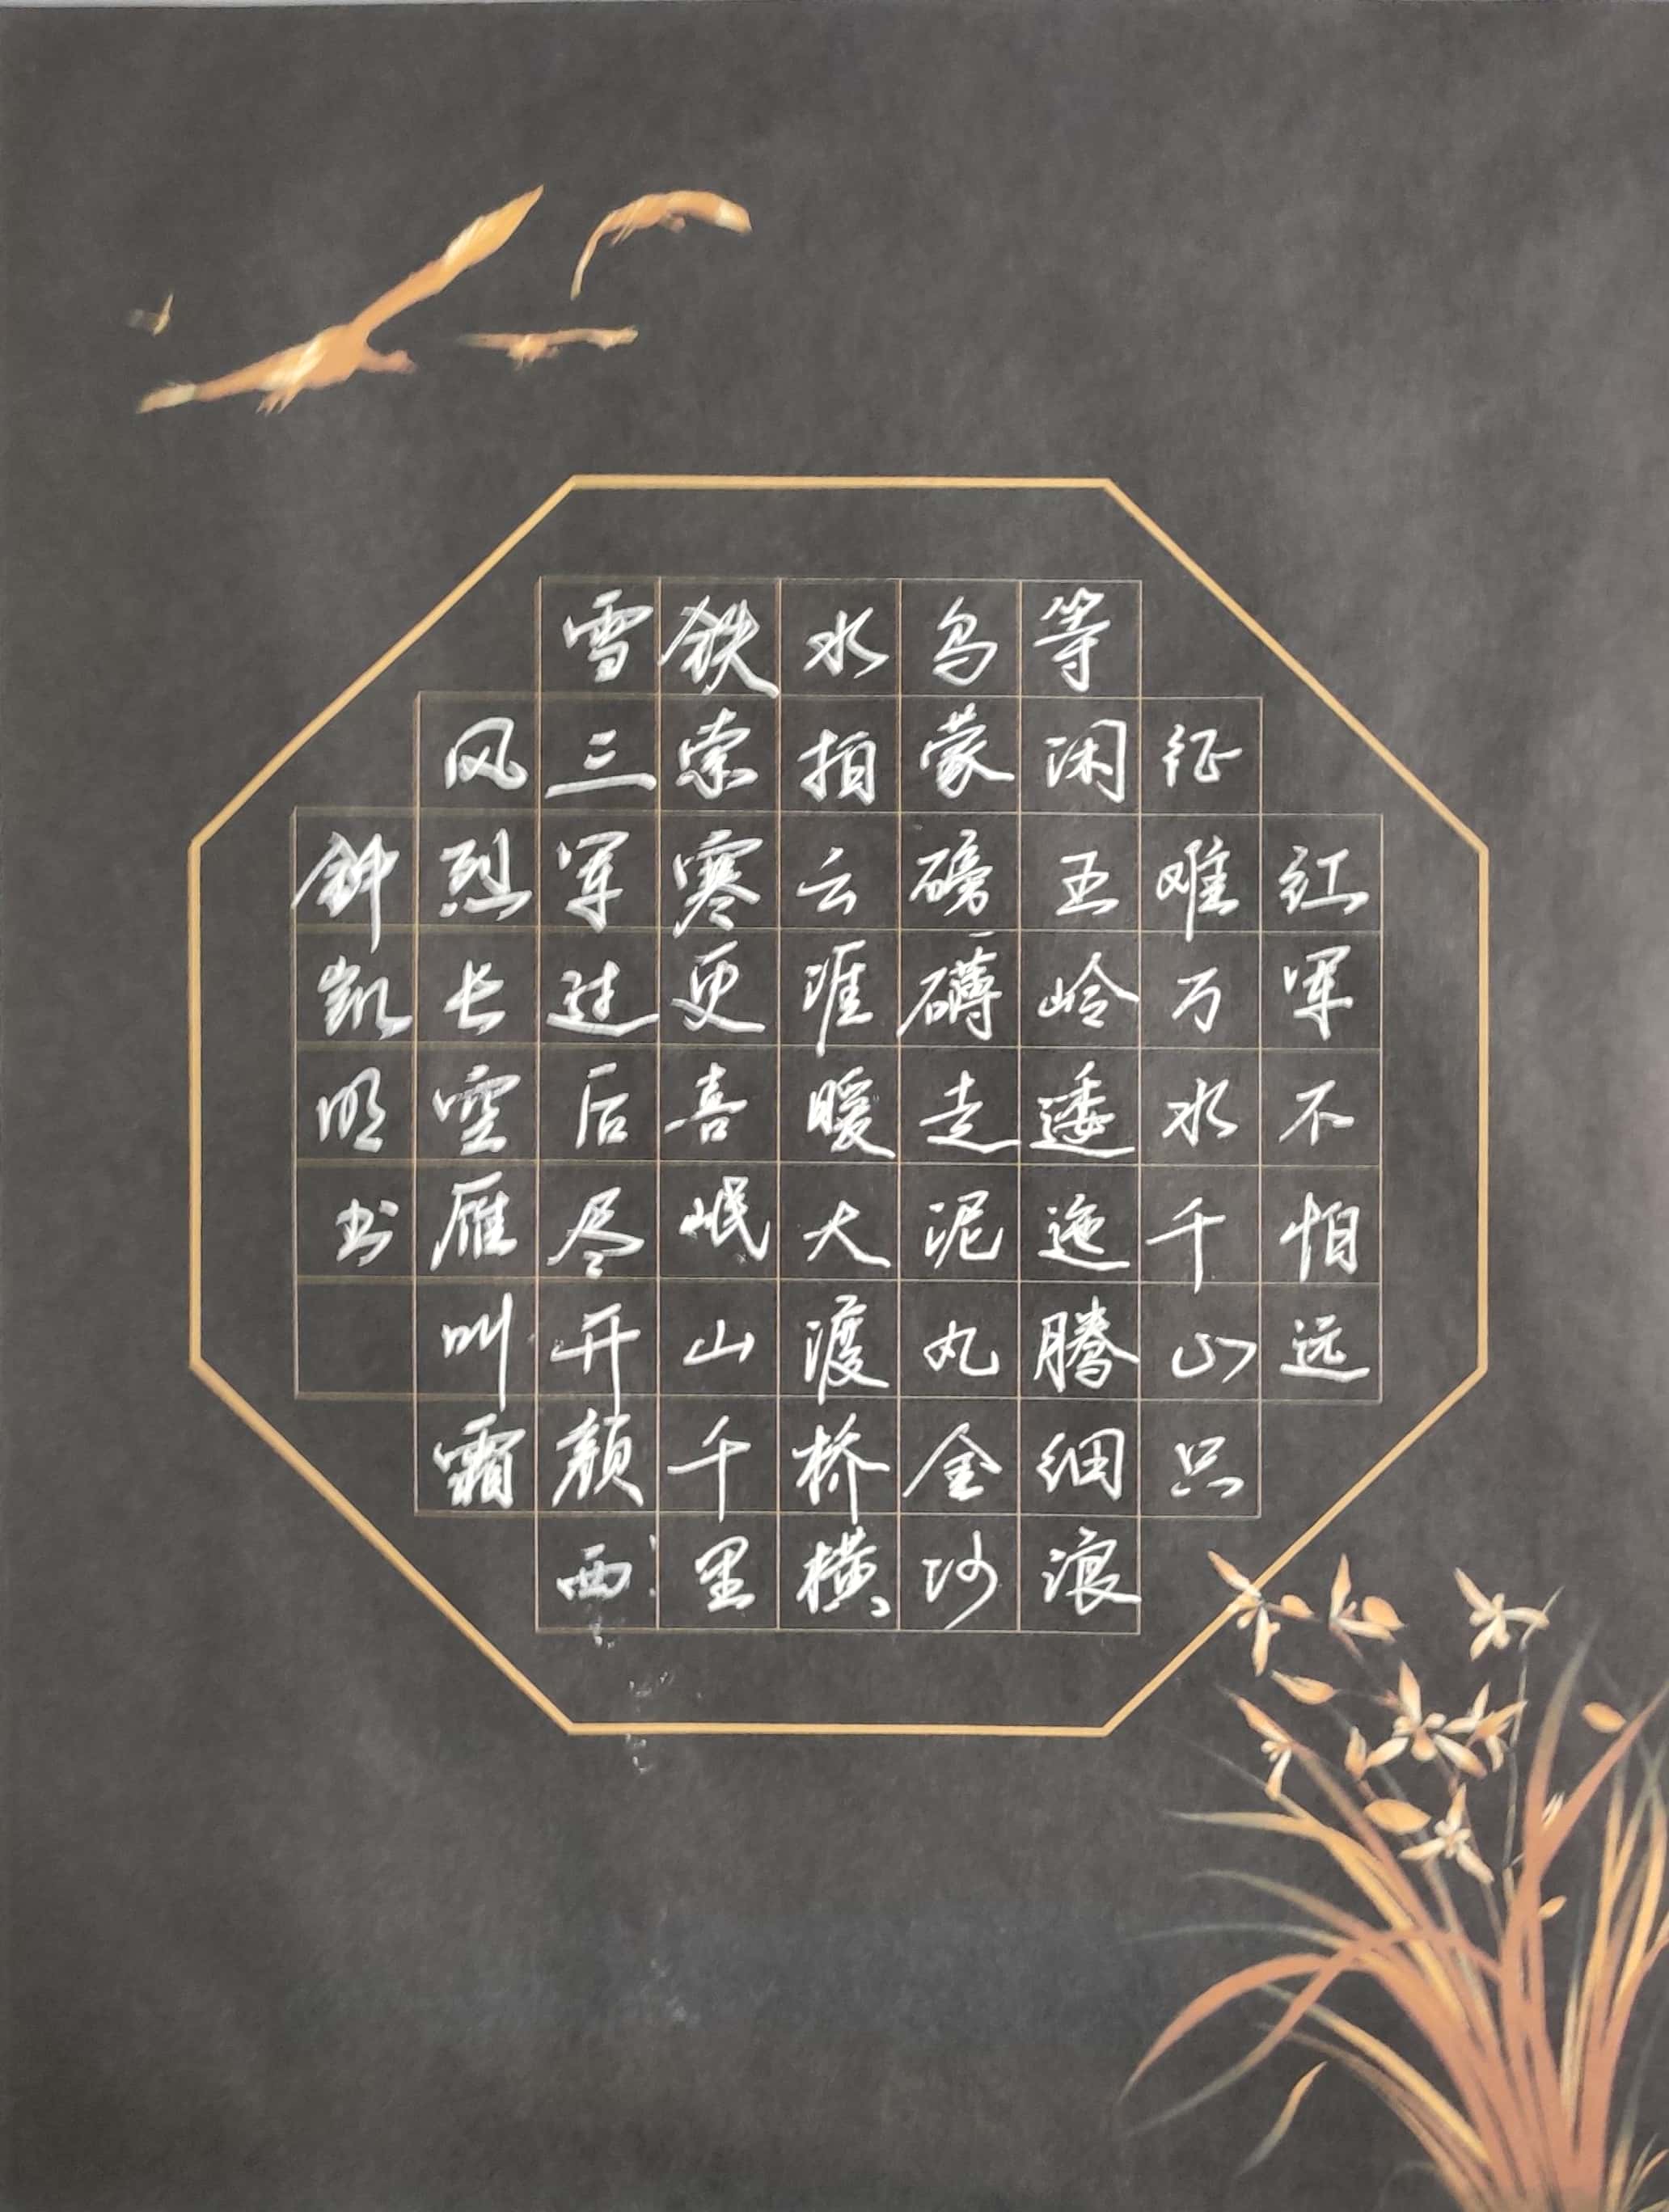 红军不怕远
征难万水千山只
等闲五岭逶迤腾细浪
乌蒙磅礴走泥丸金沙
水拍云涯暖大渡桥横
铁索寒更喜岷山千里
雪三军过后尽开颜西
风烈长空雁叫霜
钟凯明书